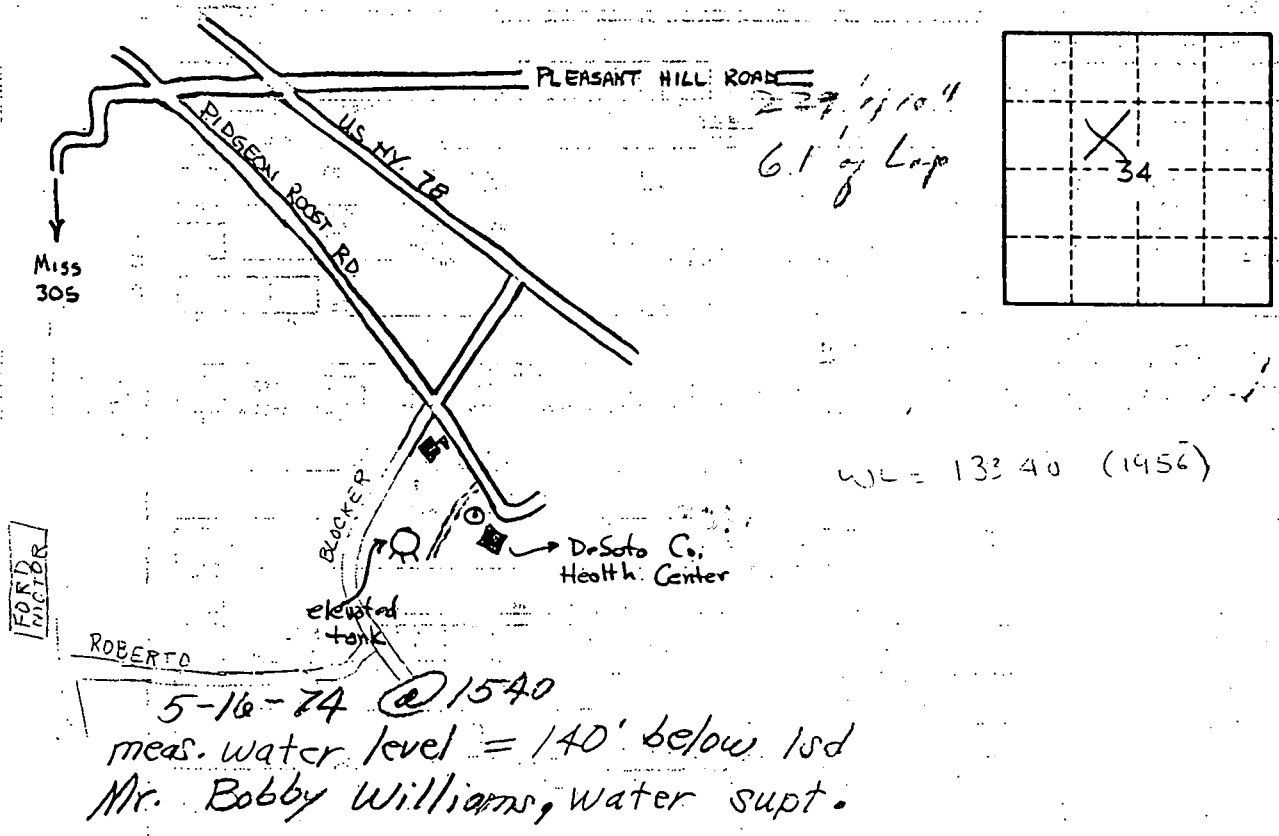 PLEASANT HILL ROAD
PIDGEON ROOST RD.
U.S. HY. 78
34
Miss
305
WL = 133.40 (1956)
BLOCKER
DeSoto Co.
Health Center
elevated
tank
FORD
VICTOR
ROBERTO
5-16-74 @ 1540
meas. water level = 140' below lsd
Mr. Bobby Williams, water supt.